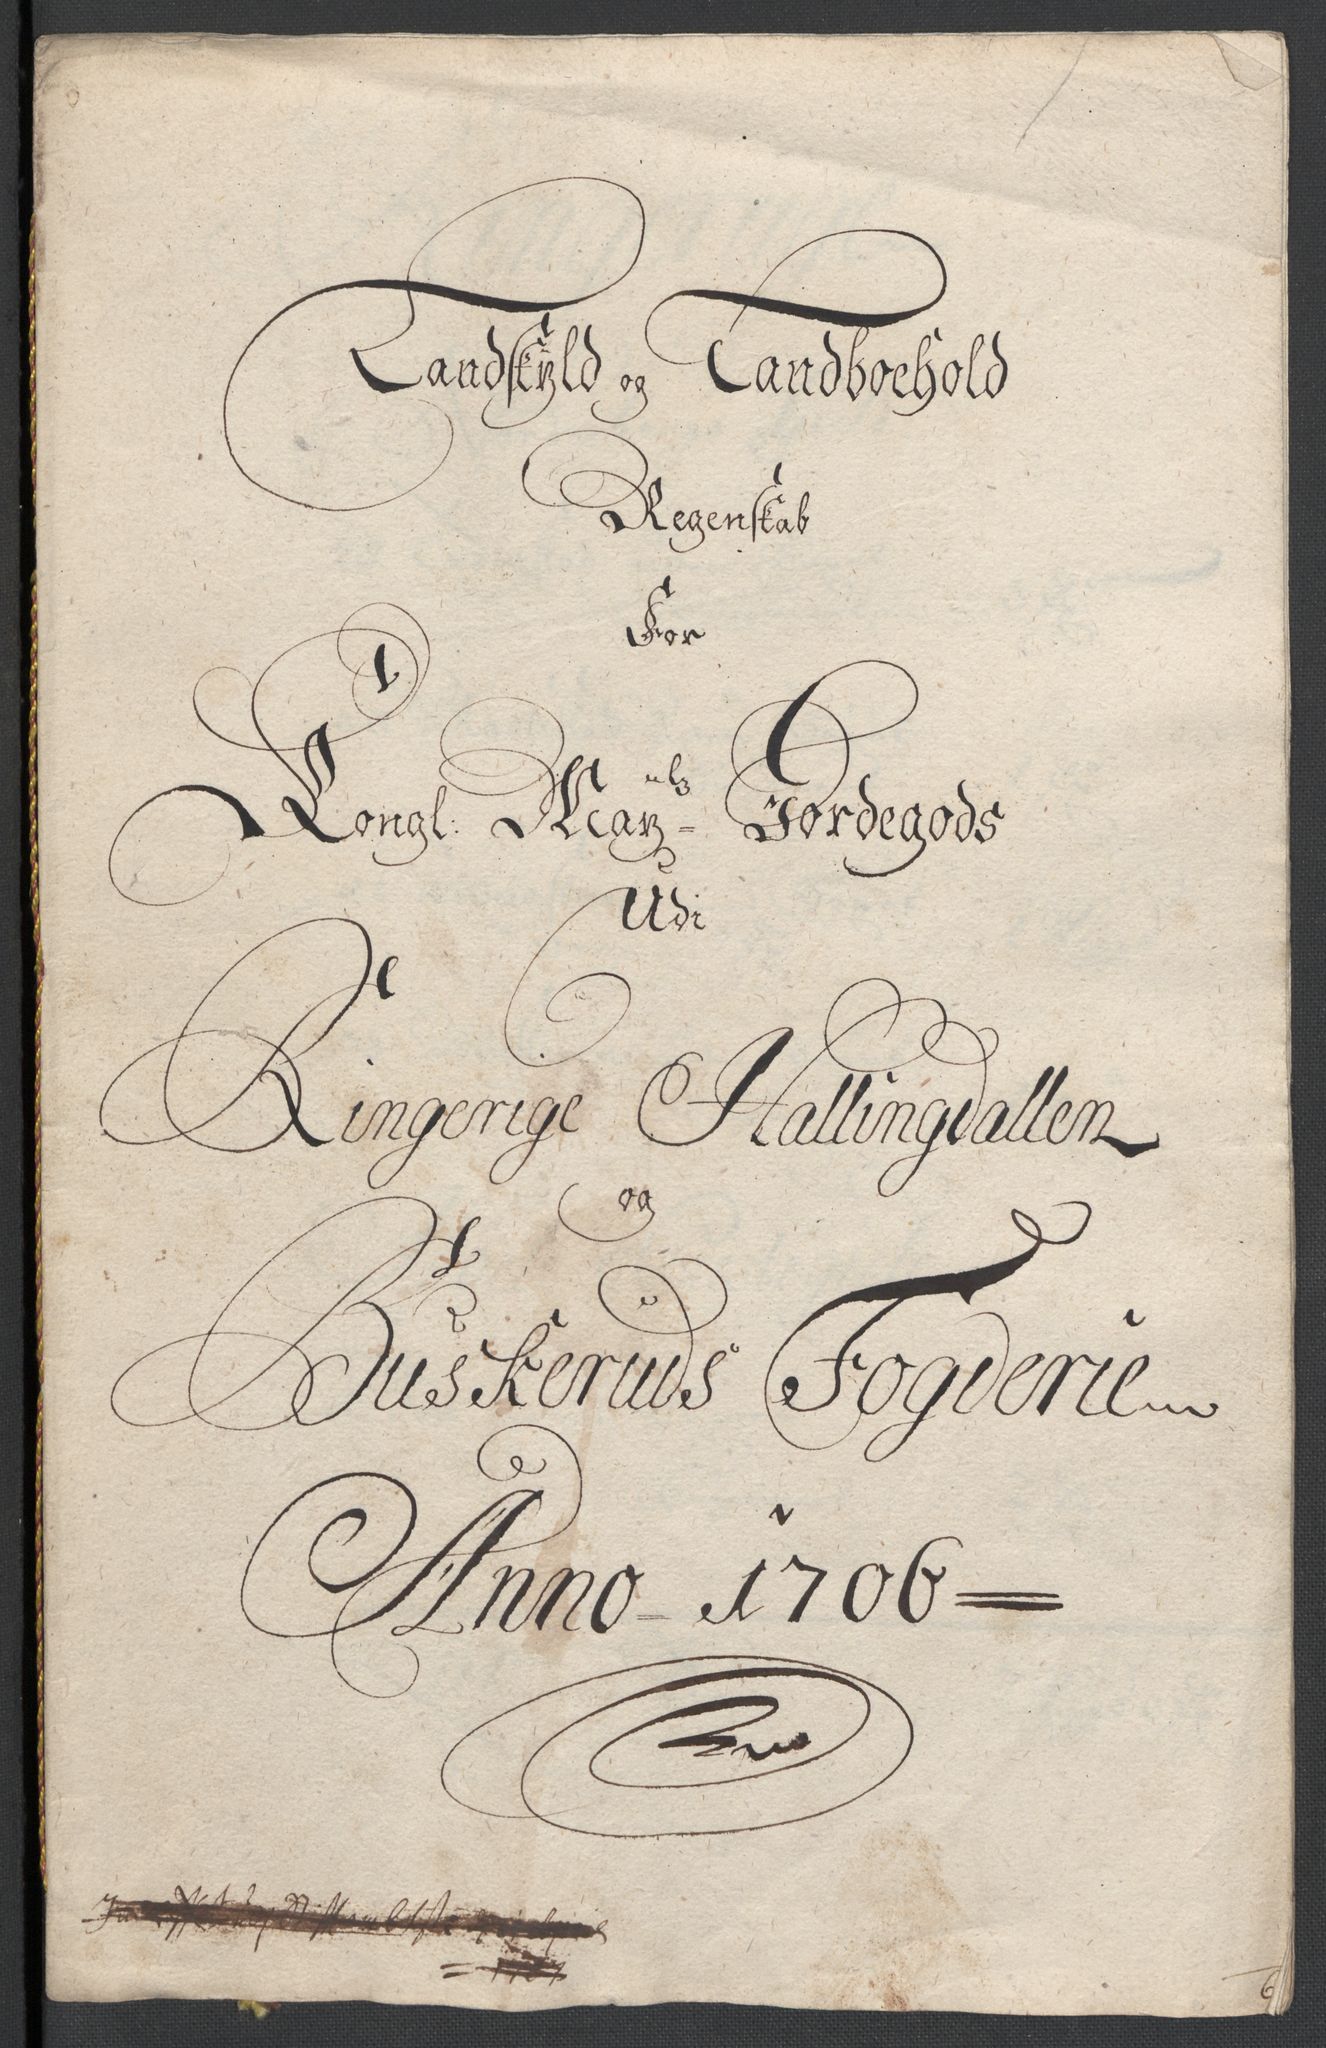 Landskyld og Landboehold
Regenskab
For
Kongl: May- ᵗᵗˢ Jordegods
Udi
Ringerige Hallingdallen
og
Buskeruds Fogderie
Anno - 1706
1707
6